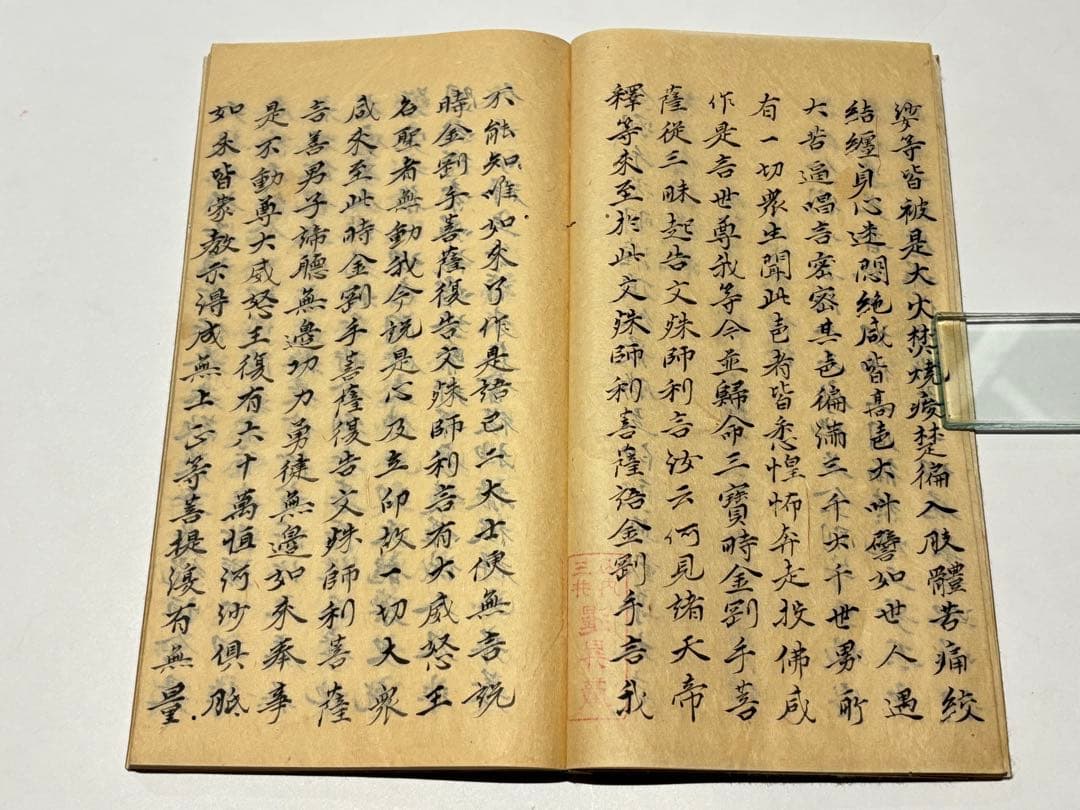 娑等皆被是大火焚燒痠楚徧入肢體苦痛絞
結纏身心迷悶絕咸皆高声大叫譬如世人遇
大苦逼唱言密密其声徧滿三千大千世界所
有一切衆生聞此声者皆悉惶怖奔走投佛咸
作是言世尊我等今並歸命三寶時金剛手菩
薩從三昧起告文殊師利言汝云何見諸天帝
釋等來至於此文殊師利菩薩語金剛手言我
不能知唯如來了作是語已二大士便無言説
時金剛手菩薩復告文殊師利言有大威怒王
名聖者無動我今說是心及立印故一切大衆
咸來至此時金剛手菩薩復告文殊師利菩薩
言善男子諦聽無邊功力勇健無邊如來奉事
是不動尊大威怒王復有六十萬恒河沙俱胝
如來皆蒙教示得成無上正等菩提復有無量
三井